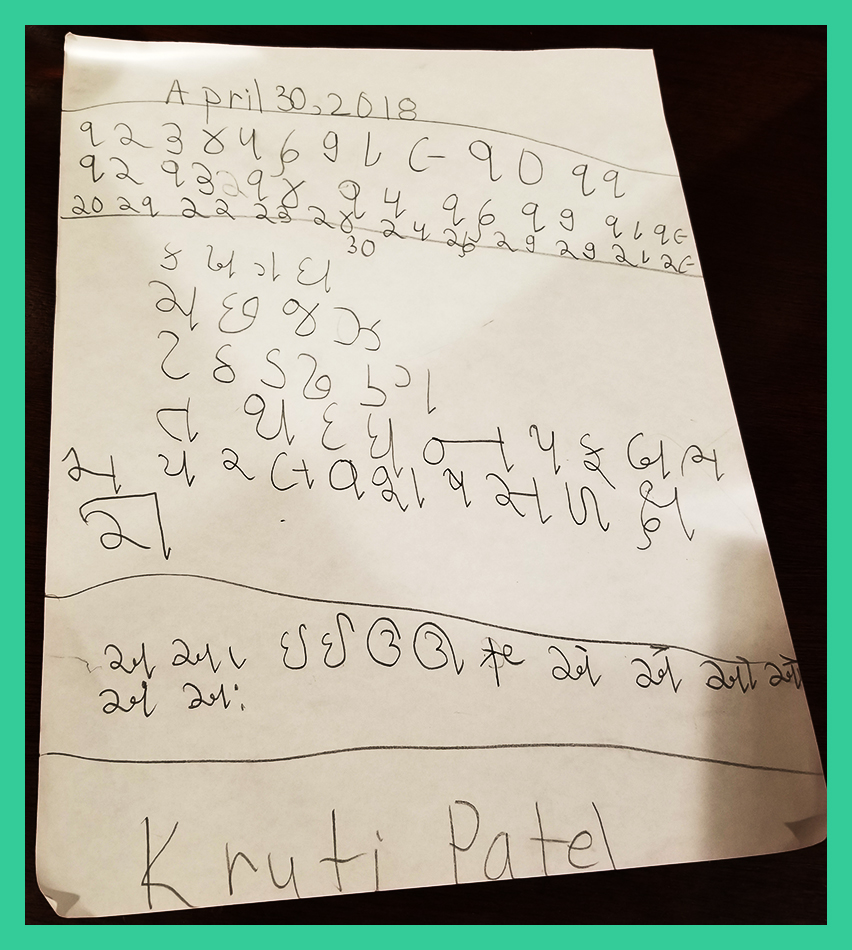 April 30, 2018
૧ ૨ ૩ ૪ ૫ ૬ ૭ ૮ ૯ ૧૦ ૧૧
૧૨ ૧૩ ૧૪ ૧૫ ૧૬ ૧૭ ૧૮ ૧૯
૨૦ ૨૧ ૨૨ ૨૩ ૨૪ ૨૫ ૨૬ ૨૭ ૨૭ ૨૮ ૨૯
૩૦
ક ખ ગ ઘ
ચ છ જ ઝ
ટ ઠ ડ ઢ ણ
ત થ દ ધ ન પ ફ બ ભ
મ ય ર લ વ શ ષ સ ળ ક્ષ
જ્ઞ
અ આ ઇ ઈ ઉ ઊ ઋ એ ઐ ઓ ઔ
અં અઃ
Kruti Patel